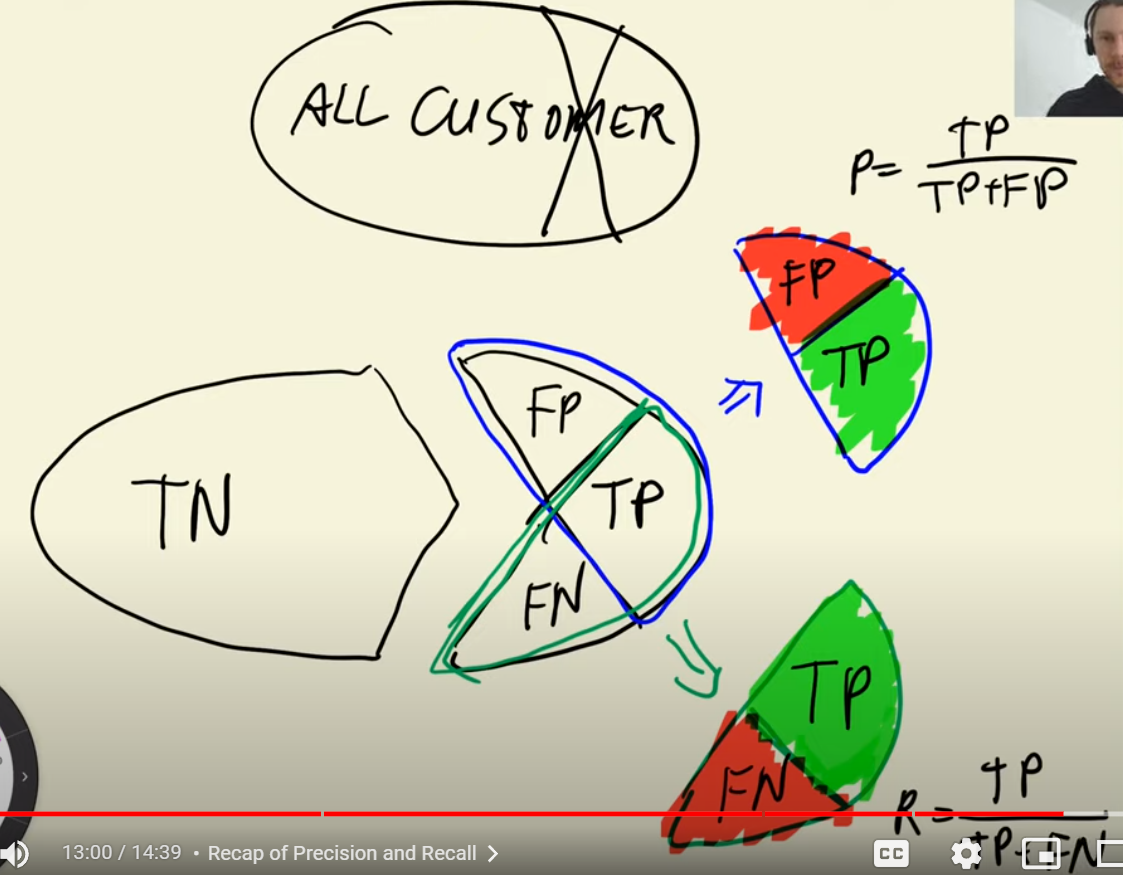 ALL CUSTOMER
P = TP / TP+FP
FP
TP
FP
TN
TP
FN
TP
FN
R = TP / TP+FN
13:00 / 14:39 • Recap of Precision and Recall >
CC